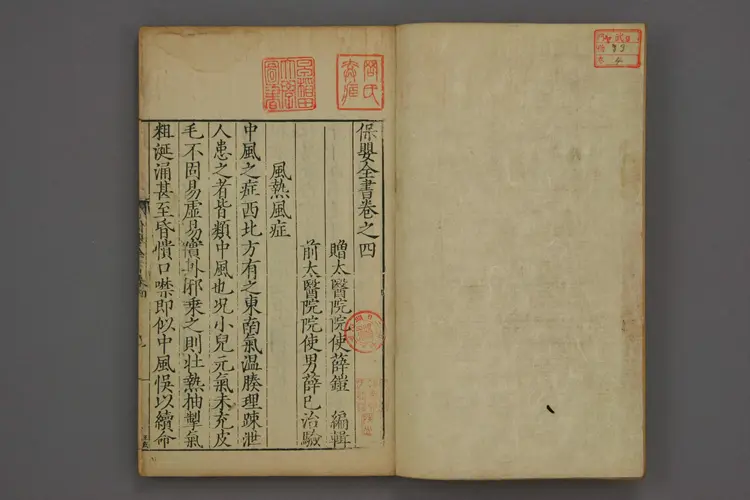 保嬰全書卷之四
贈太醫院院使薛鎧 編輯
前太醫院院使男薛已治驗
風熱風症
中風之症西北方有之東南氣溫腠理踈泄
人患之者皆類中風也况小兒元氣未充皮
毛不固易虛易實外邪乘之則壯熱抽掣氣
粗涎涌甚至昏憒口噤即似中風悞以續命
早稻田大學圖書